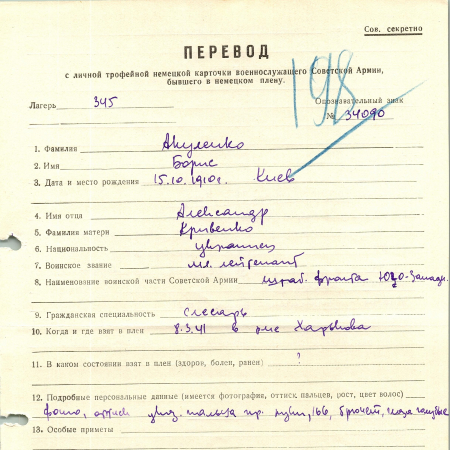 Сов. секретно
ПЕРЕВОД
с личной трофейной немецкой карточки военнослужащего Советской Армии,
бывшего в немецком плену.
198
Лагерь 345 Опознавательный знак
№ 34090
1. Фамилия Акуленко
2. Имя Борис
3. Дата и место рождения 15.10.1910г. Киев
4. Имя отца Александр
5. Фамилия матери Кривенко
6. Национальность украинец
7. Воинское звание мл. лейтенант
8. Наименование воинской части Советской Армии штаб фронта Юго-Западн.
9. Гражданская специальность слесарь
10. Когда и где взят в плен 8.3.41 в Харькова
11. В каком состоянии взят в плен (здоров, болен, ранен) ?
12. Подробные персональные данные (имеется фотография, оттиск пальцев, рост, цвет волос)
фото, оттиск указ. пальца пр. руки, 166, брюнет, глаза голубые
13. Особые приметы